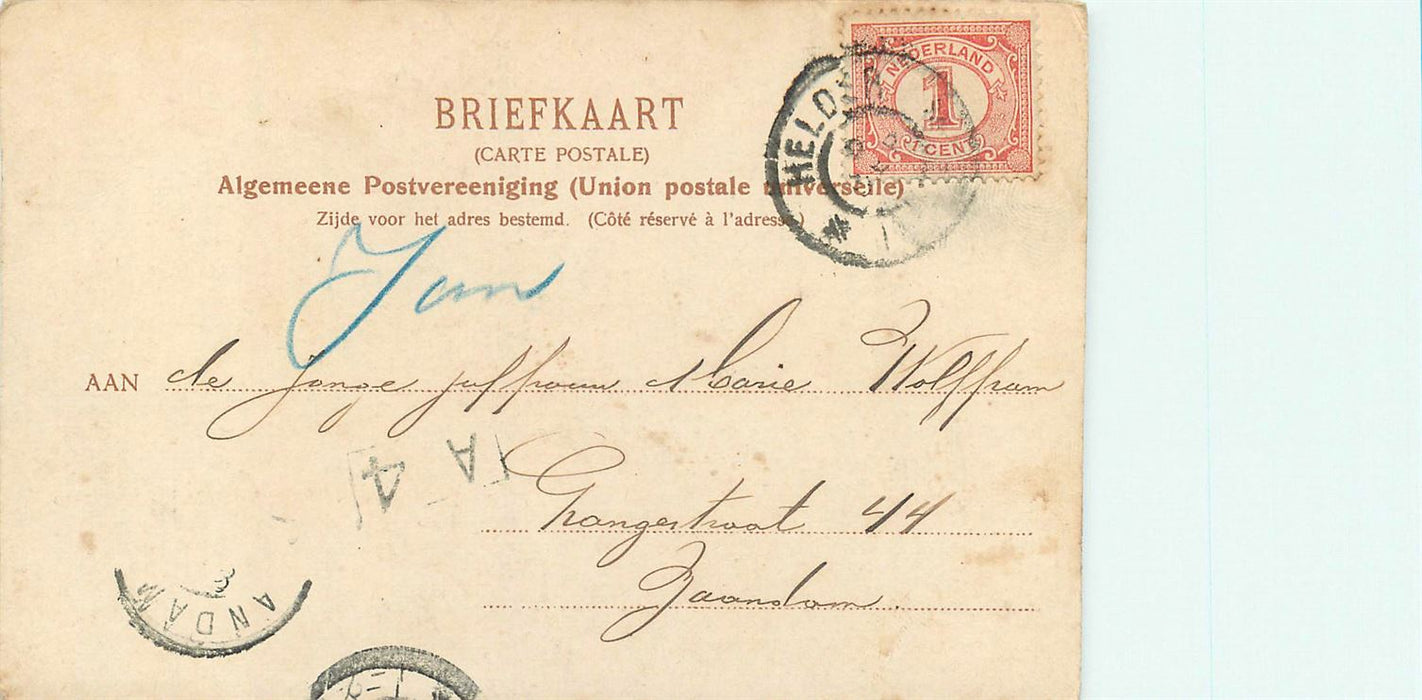 NEDERLAND
1
1 CENT
HELDER
BRIEFKAART
(CARTE POSTALE)
Algemeene Postvereeniging (Union postale universelle)
Zijde voor het adres bestemd. (Côté réservé à l'adresse)
Jan
AAN de jonge juffrouw Marie Wolffram
44
Zaandam.
A 4
ANDAM